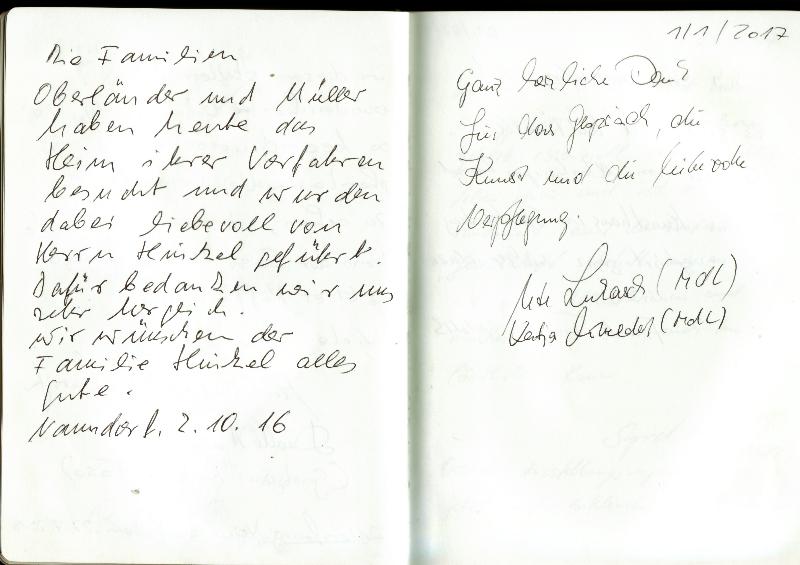 Die Familien
Oberländer und Müller
haben heute das
Heim ihrer Vorfahren
besucht und wurden
dabei liebevoll von
Herrn Hinkel geführt.
Dafür bedanken wir uns
sehr herzlich.
Wir wünschen der
Familie Hinkel alles
Gute.
Naundorf, 2.10.16
1/1/2017
Ganz herzliche Dank
für das Gespräch, die
Kunst und die leibliche
Verpflegung.
(MdL)
Katja (MdL)